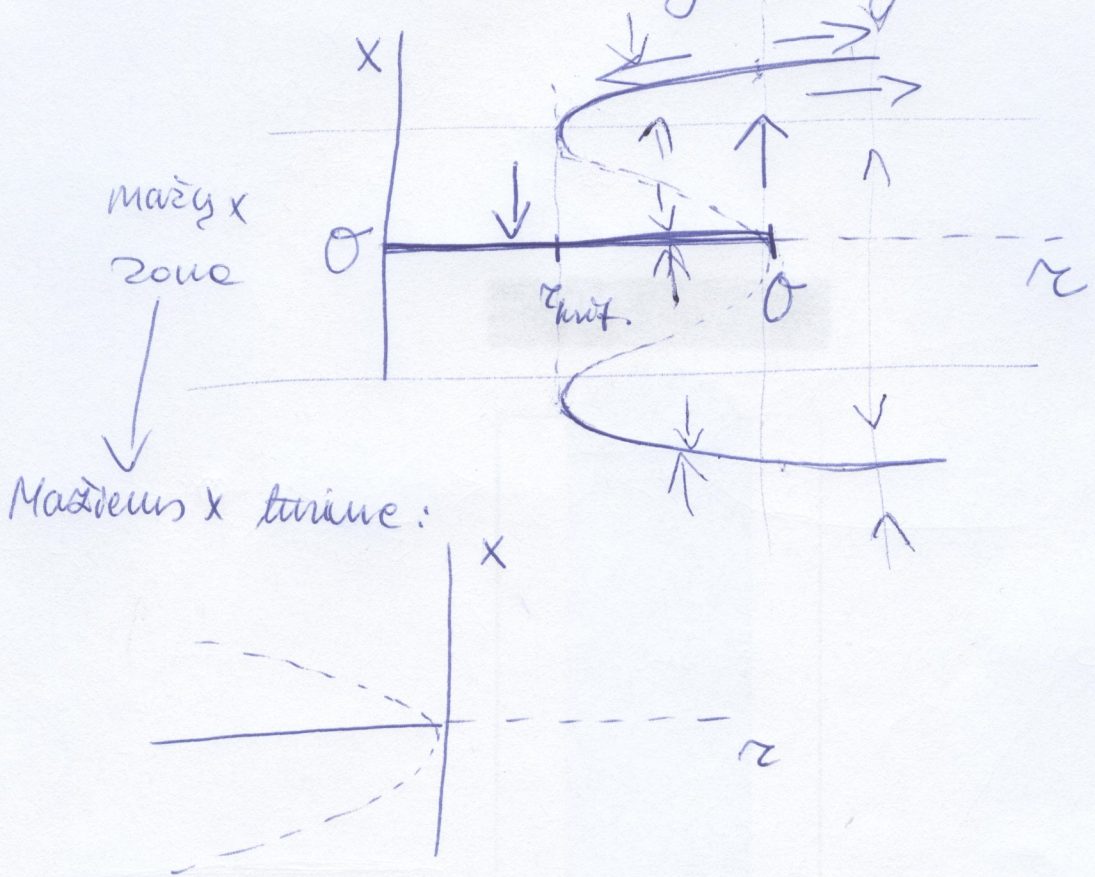 x
mažų x
zona
0
r krit.
0
r
Mažiems x turime:
x
r